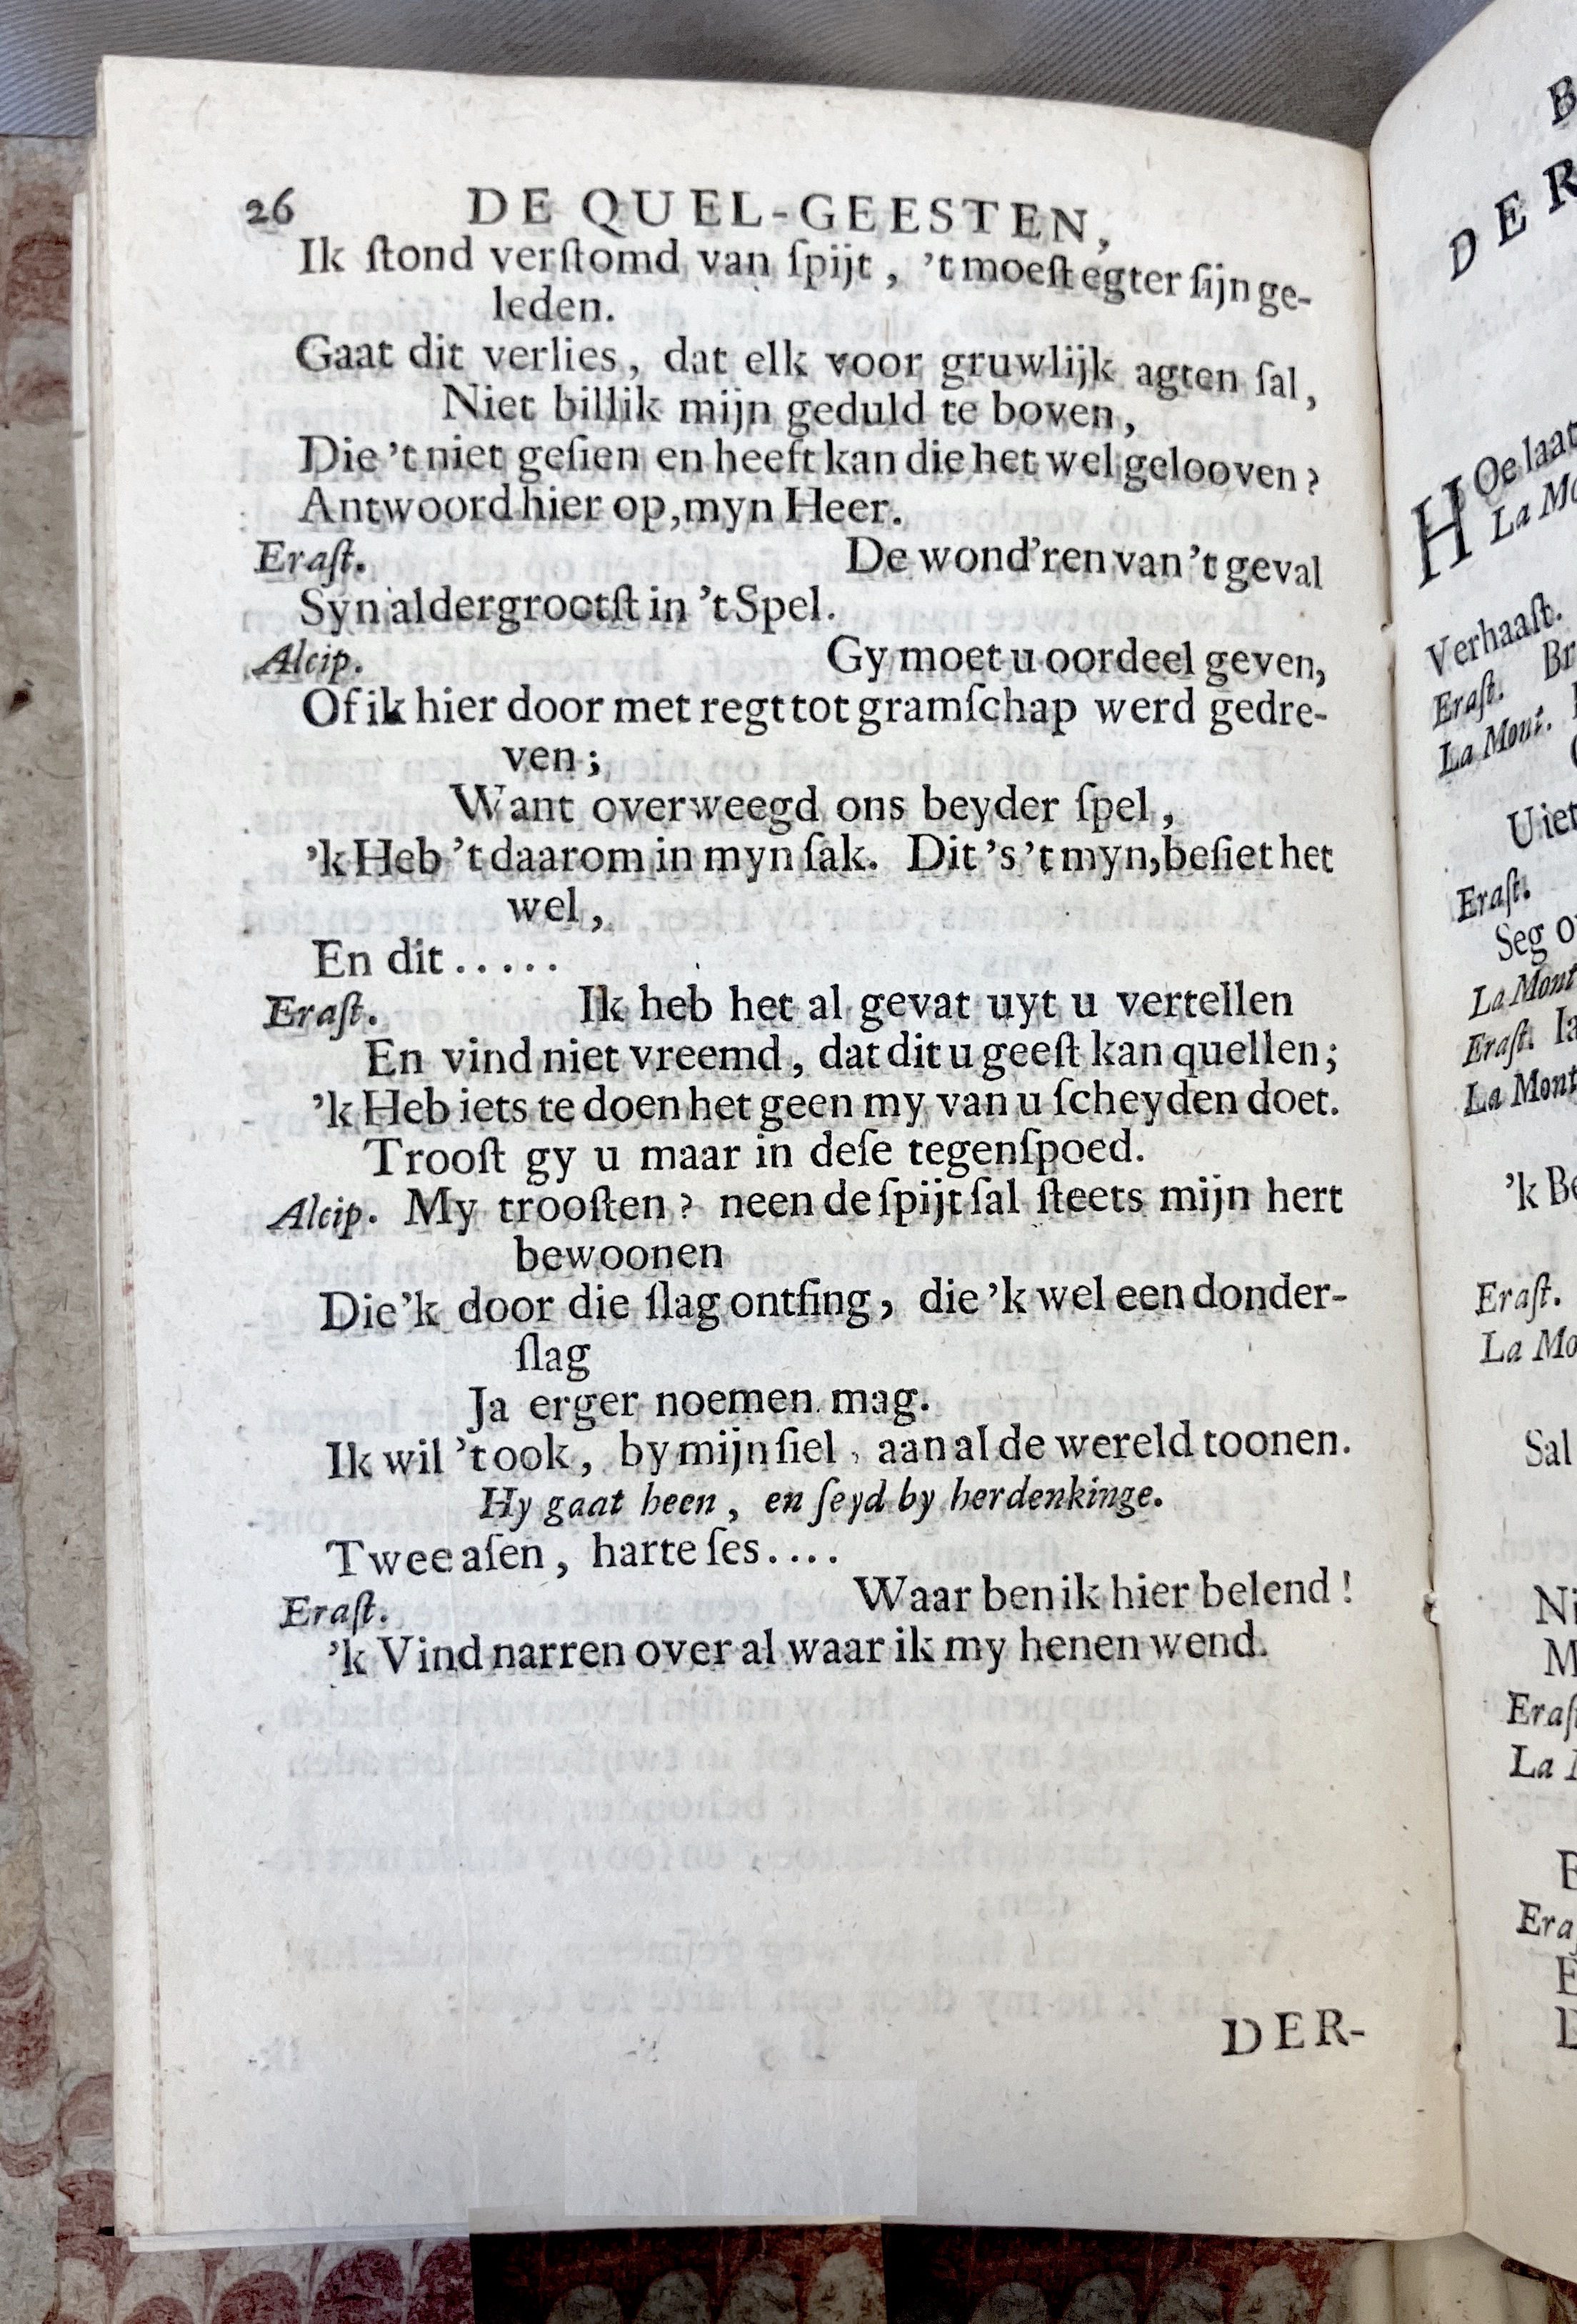 26 DE QUEL-GEESTEN,
Ik ſtond verſtomd van ſpijt, 't moeſt egter ſijn ge-
leden.
Gaat dit verlies, dat elk voor gruwlijk agten ſal,
Niet billik mijn geduld te boven,
Die 't niet geſien en heeft kan die het wel gelooven?
Antwoord hier op, myn Heer.
Eraſt. De wond'ren van 't geval
Syn aldergrootſt in 't Spel.
Alcip. Gy moet u oordeel geven,
Of ik hier door met regt tot gramſchap werd gedre-
ven;
Want overweegd ons beyder ſpel,
'k Heb 't daarom in myn ſak. Dit 's 't myn, beſiet het
wel,
En dit.....
Eraſt. Ik heb het al gevat uyt u vertellen
En vind niet vreemd, dat dit u geeſt kan quellen;
'k Heb iets te doen het geen my van u ſcheyden doet.
Trooſt gy u maar in deſe tegenſpoed.
Alcip. My trooſten? neen de ſpijt ſal ſteets mijn hert
bewoonen
Die 'k door die ſlag ontfing, die 'k wel een donder-
ſlag
Ja erger noemen mag.
Ik wil 't ook, by mijn ſiel, aan al de wereld toonen.
Hy gaat heen, en ſeyd by herdenkinge.
Twee aſen, harte ſes....
Eraſt. Waar ben ik hier belend!
'k Vind narren over al waar ik my henen wend.
DER-
DER
HOe laat
Verhaaſt.
Eraſt. Br
La Mont.
Uiet
Eraſt.
Seg
La Mont
Eraſt. Ia
La Mont
'k Be
Eraſt.
La Mo
Sal
Ni
M
Eraſ
La
Era